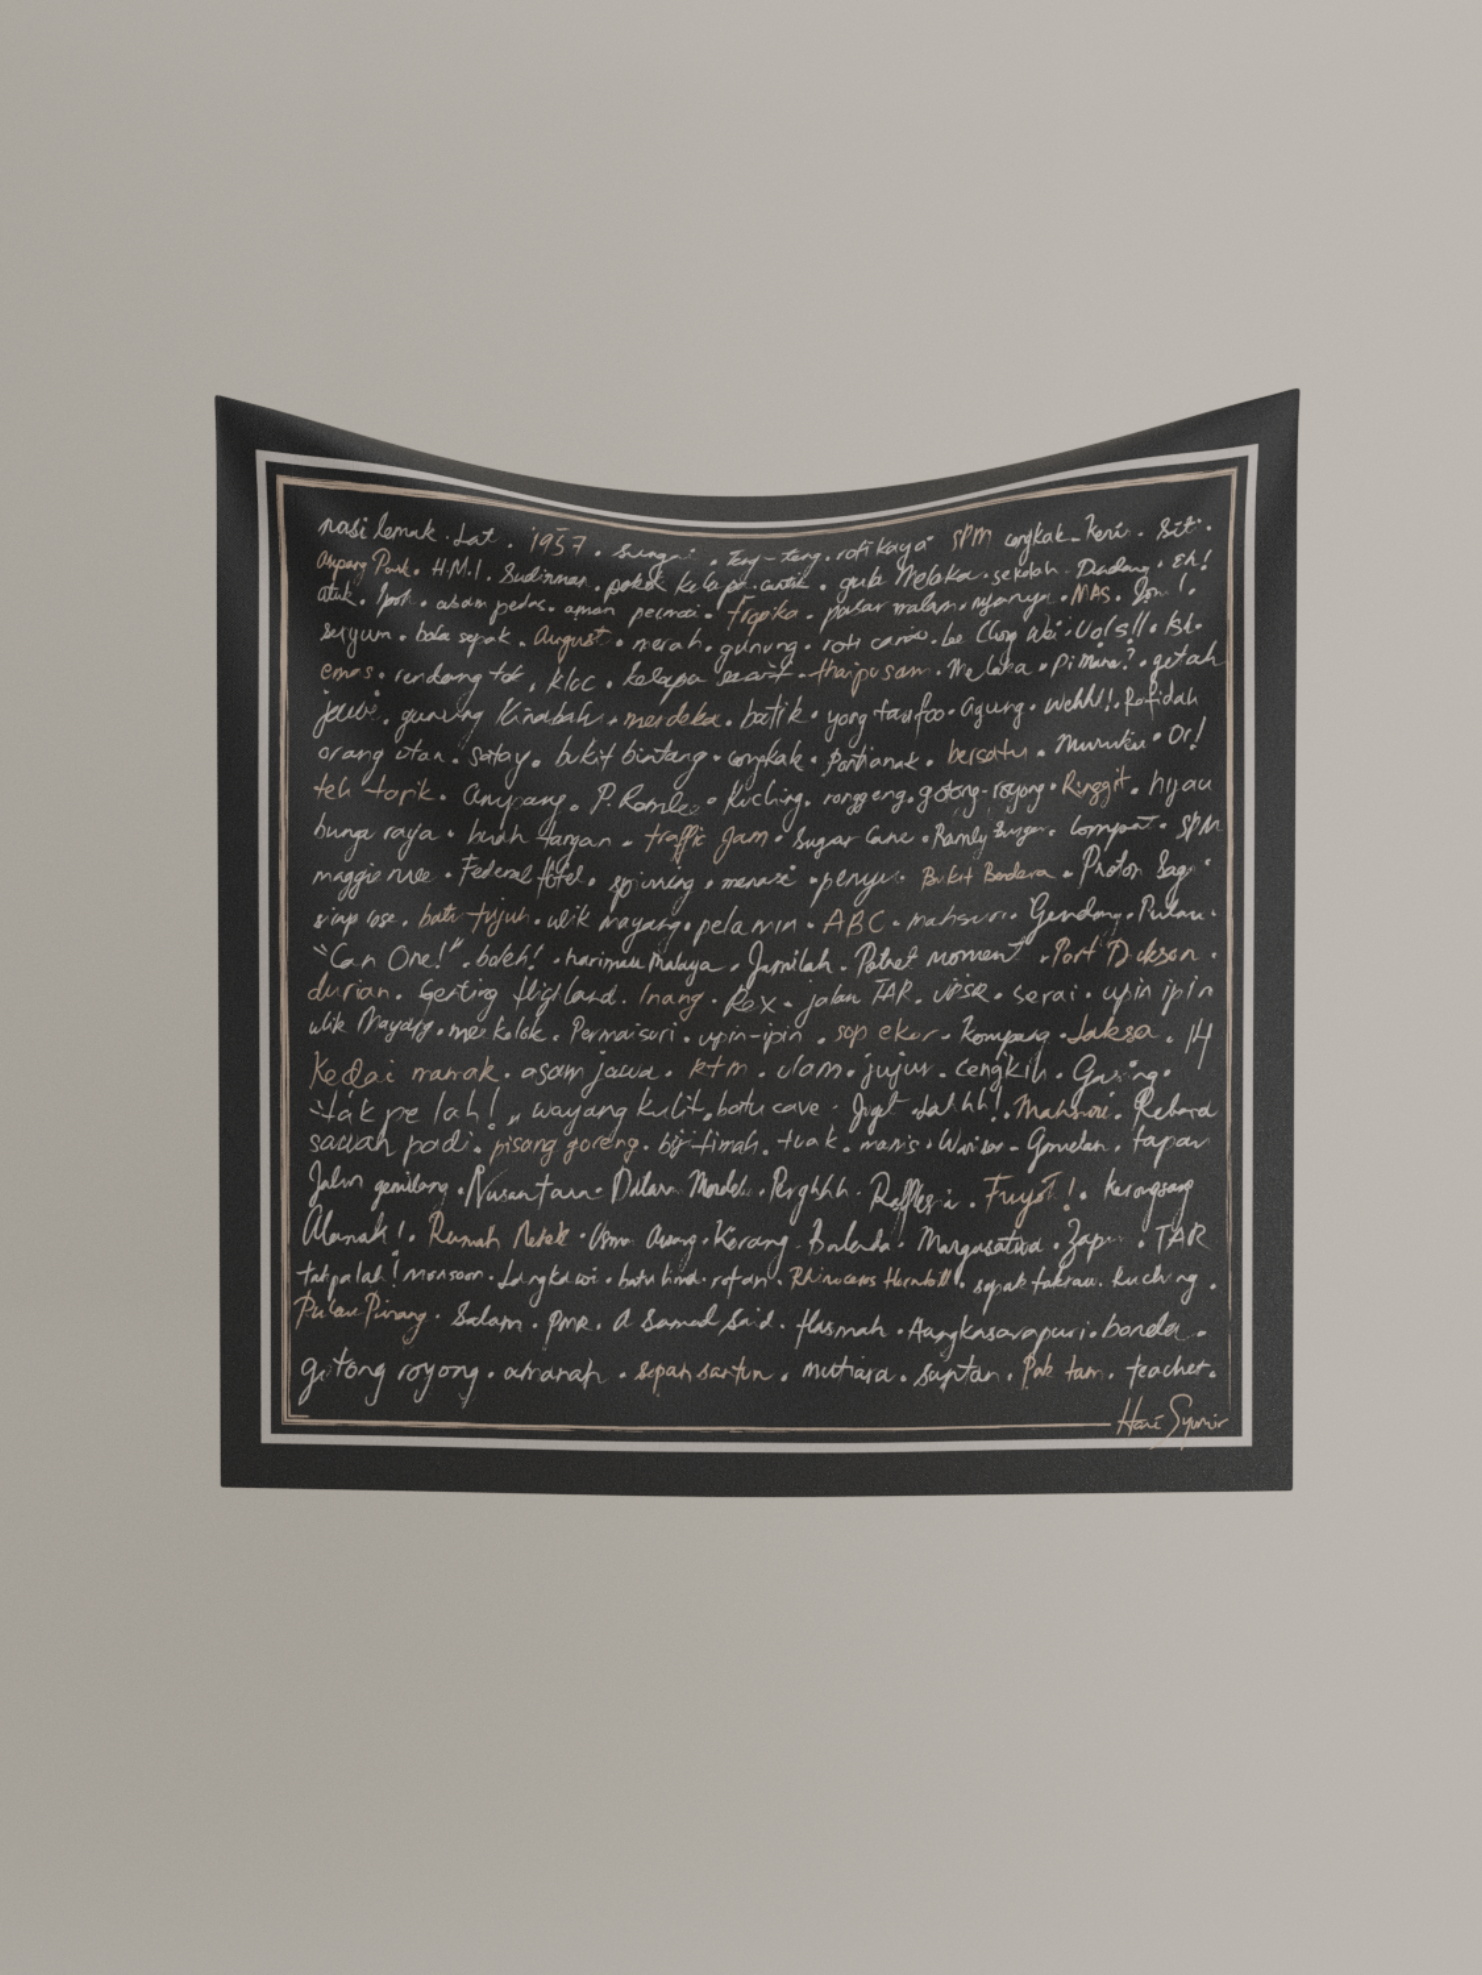 nasi lemak . Lat . 1957 . Sungai . Teng-teng . roti kaya . SPM congkak . Keris . Siti .
Ampang Park . H.M.I . Sudirman . pokok kelapa . cantik . gula Melaka . sekolah . Dadang . Eh!
atuk . Ipoh . asam pedas . aman permai . Tropika . pasar malam . nyonya . MAS . Jom! .
senyum . bola sepak . August . merah . gunung . roti canai . Lee Chong Wei . Vols!! .
emas . rendang tok . KLCC . kelapa sawit . thaipusam . Melaka . Di Mana? . getah
jawi . gunung Kinabalu . merdeka . batik . yong taufoo . Agung . Wehh!! . Rafidah
orang utan . satay . bukit bintang . congkak . Pontianak . bersatu . Muruku . Oi!
teh tarik . Ampang . P. Ramlee . Kuching . ronggeng . gotong-royong . Ringgit . hijau
bunga raya . buah tangan . traffic Jam . Sugar Cane . Ramly Burger . lompat . SPM
maggie mee . Federal Hotel . spinning . menari . penyu . Bukit Bendera . Proton Saga .
sirap rose . batu tujuh . ulik mayang . pelamin . ABC . mahsuri . Gendang . Pulau .
"Can One!" . boleh! . harimau Malaya . Jamilah . Potret moment . Port Dickson .
durian . Genting Highland . Inang . Rex . jalan TAR . UPSR . serai . upin ipin
ulik Mayang . mee kolok . Permaisuri . upin-ipin . sop ekor . Kompang . Laksa . 14
Kedai mamak . asam jawa . ktm . ulam . jujur . cengkih . Gasing .
"tak pe lah!" wayang kulit . batu cave . Joget . dahhh! . Mahsuri . Rebana
sawah padi . pisang goreng . bijih timah . tuak . manis . Warisan . Gamelan . tapau
Jalur gemilang . Nusantara . Dataran Merdeka . Perghhh . Rafflesia . Fuyoh! . Kerongsang
Alamak! . Rumah Merah . Usman Awang . Korang . Balada . Margasatwa . Zapin . TAR
takpalah! monsoon . Langkawi . batu lima . rotan . Rhinoceros Hornbill . sepak takraw . Kuching .
Pulau Pinang . Salam . PMR . A Samad Said . Hasmah . Langkasarapuri . bonda .
gotong royong . amanah . sopan santun . mutiara . suntan . Pak tam . teacher .